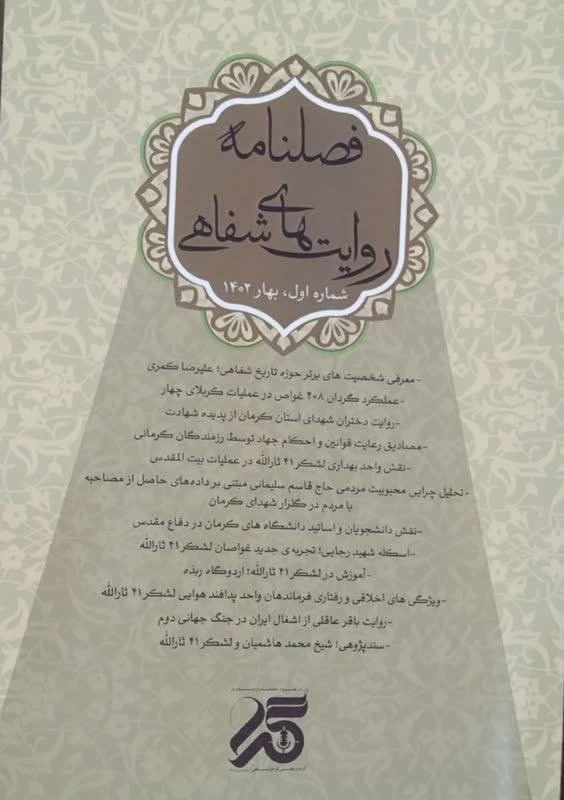 فصلنامه
روایت های شفاهی
شماره اول، بهار ۱۴۰۲
- معرفی شخصیت های برتر حوزه تاریخ شفاهی؛ علیرضا کمری
-عملکرد گردان ۴۰۸ غواص در عملیات کربلای چهار
-روایت دختران شهدای استان کرمان از پدیده شهادت
-مصادیق رعایت قوانین و احکام جهاد توسط رزمندگان کرمانی
-نقش واحد بهداری لشکر ۴۱ ثارالله در عملیات بیت المقدس
-تحلیل چرایی محبوبیت مردمی حاج قاسم سلیمانی مبتنی بر داده‌های حاصل از مصاحبه
با مردم در گلزار شهدای کرمان
-نقش دانشجویان و اساتید دانشگاه های کرمان در دفاع مقدس
-اسکله شهید رجایی؛ تجربه‌ی جدید غواصان لشکر ۴۱ ثارالله
-آموزش در لشکر ۴۱ ثارالله؛ اردوگاه ربذه
-ویژگی های اخلاقی و رفتاری فرماندهان واحد پدافند هوایی لشکر ۴۱ ثارالله
-روایت باقر عاقلی از اشغال ایران در جنگ جهانی دوم
-سندپژوهی؛ شیخ محمد هاشمیان و لشکر ۴۱ ثارالله